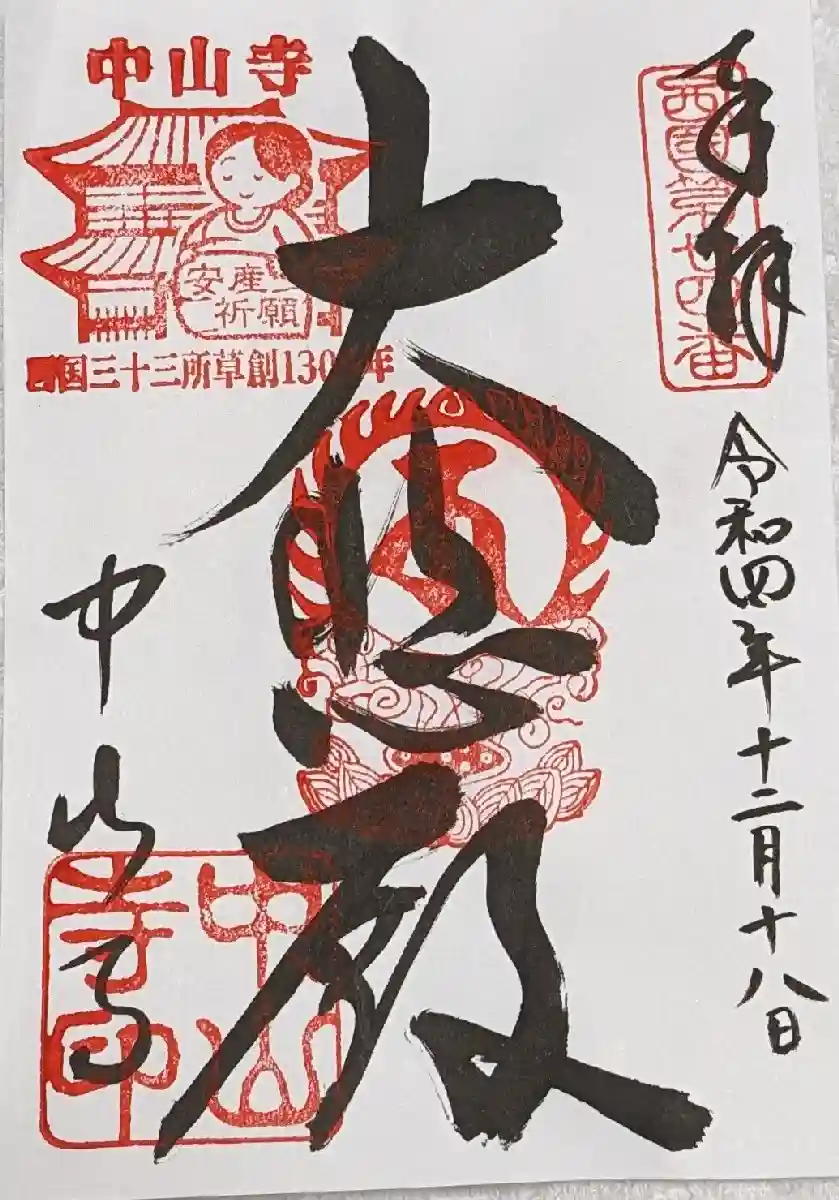 奉拝
西国第廿四番
令和四年十二月十八日
大悲殿
中山寺
安産
祈願
西国三十三所草創1300年
中山寺
中山寺印